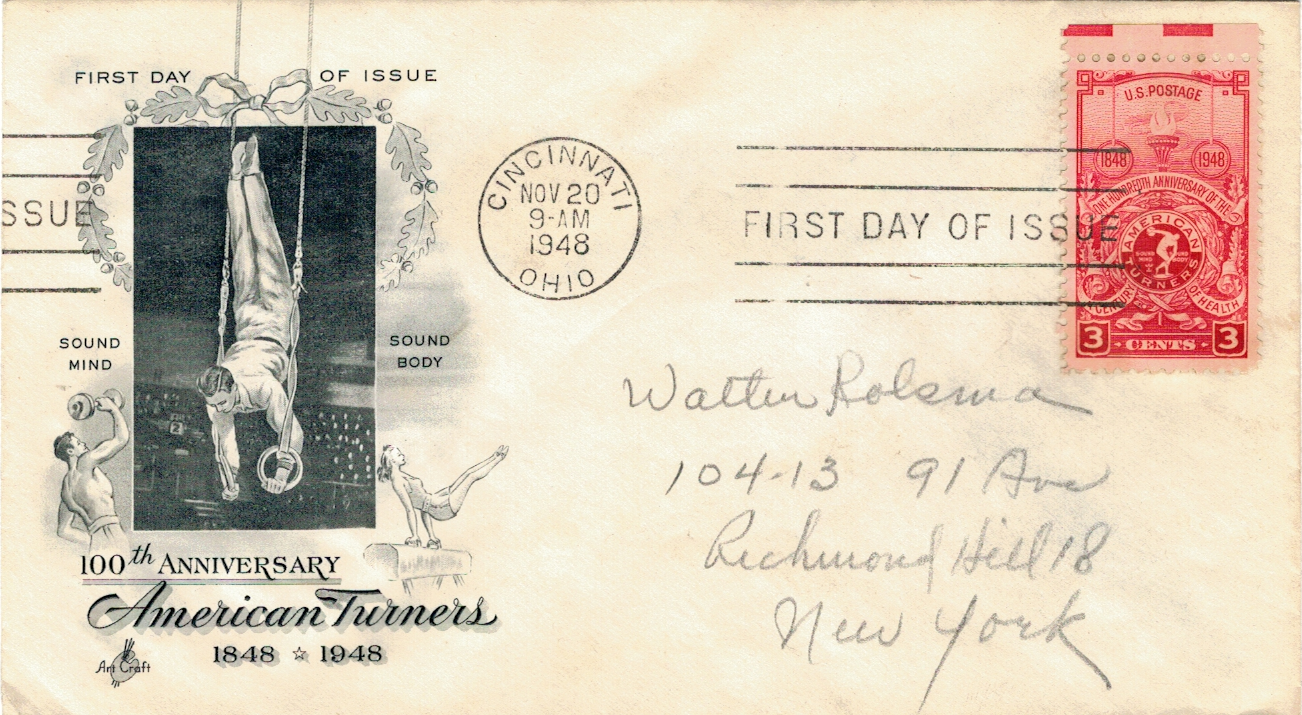 FIRST DAY OF ISSUE
SSUE
SOUND MIND
SOUND BODY
2
100th ANNIVERSARY
American Turners
1848 ☆ 1948
Art Craft
CINCINNATI
NOV 20
9-AM
1948
OHIO
FIRST DAY OF ISSUE
U.S. POSTAGE
1848 1948
ONE HUNDREDTH ANNIVERSARY OF THE
AMERICAN
SOUND MIND SOUND BODY
TURNERS
CENTURY OF HEALTH
3 CENTS 3
Walter Rolsma
104-13 91 Ave
Richmond Hill 18
New York